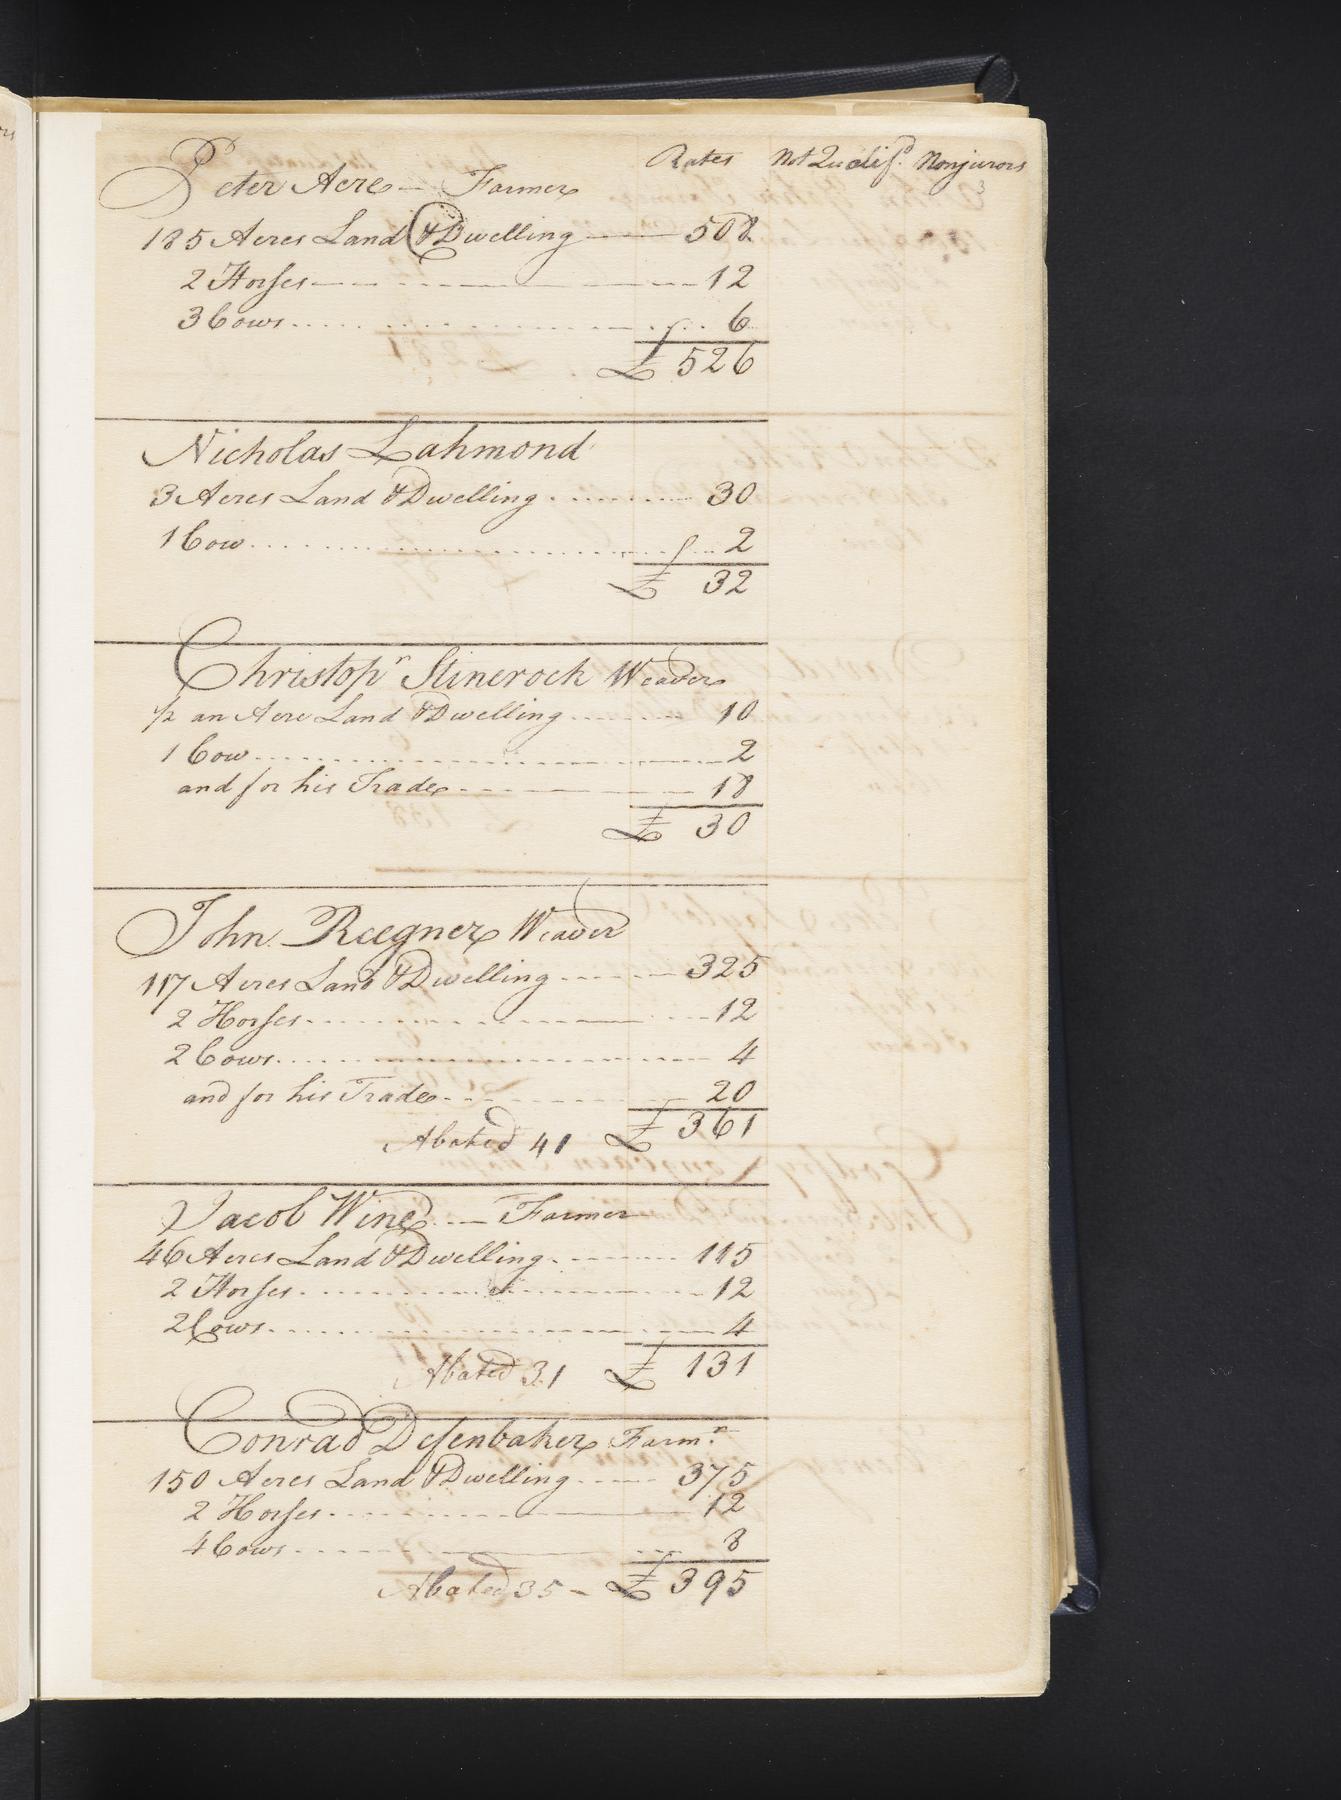 Rates Not Qualif.d Nonjurors
Peter Acre — Farmer
185 Acres Land & Dwelling — 508
2 Horses — 12
3 Cows . . . . 6
£ 526
Nicholas Lahmond
3 Acres Land & Dwelling . . . . 30
1 Cow . . . . 2
£ 32
Christopr Stinerock Weaver
1/2 an Acre Land & Dwelling . . . . 10
1 Cow . . . . 2
and for his Trade . . . . 18
£ 30
John Reegner Weaver
117 Acres Land & Dwelling . . . . 325
2 Horses . . . . 12
2 Cows . . . . 4
and for his Trade . . . . 20
Abated 41 £ 361
Jacob Wine — Farmer
46 Acres Land & Dwelling . . . . 115
2 Horses . . . . 12
2 Cows . . . . 4
Abated 31 £ 131
Conrad Defenbaker Farm.r
150 Acres Land & Dwelling . . . . 375
2 Horses . . . . 12
4 Cows . . . . 8
Abated 35 — £ 395